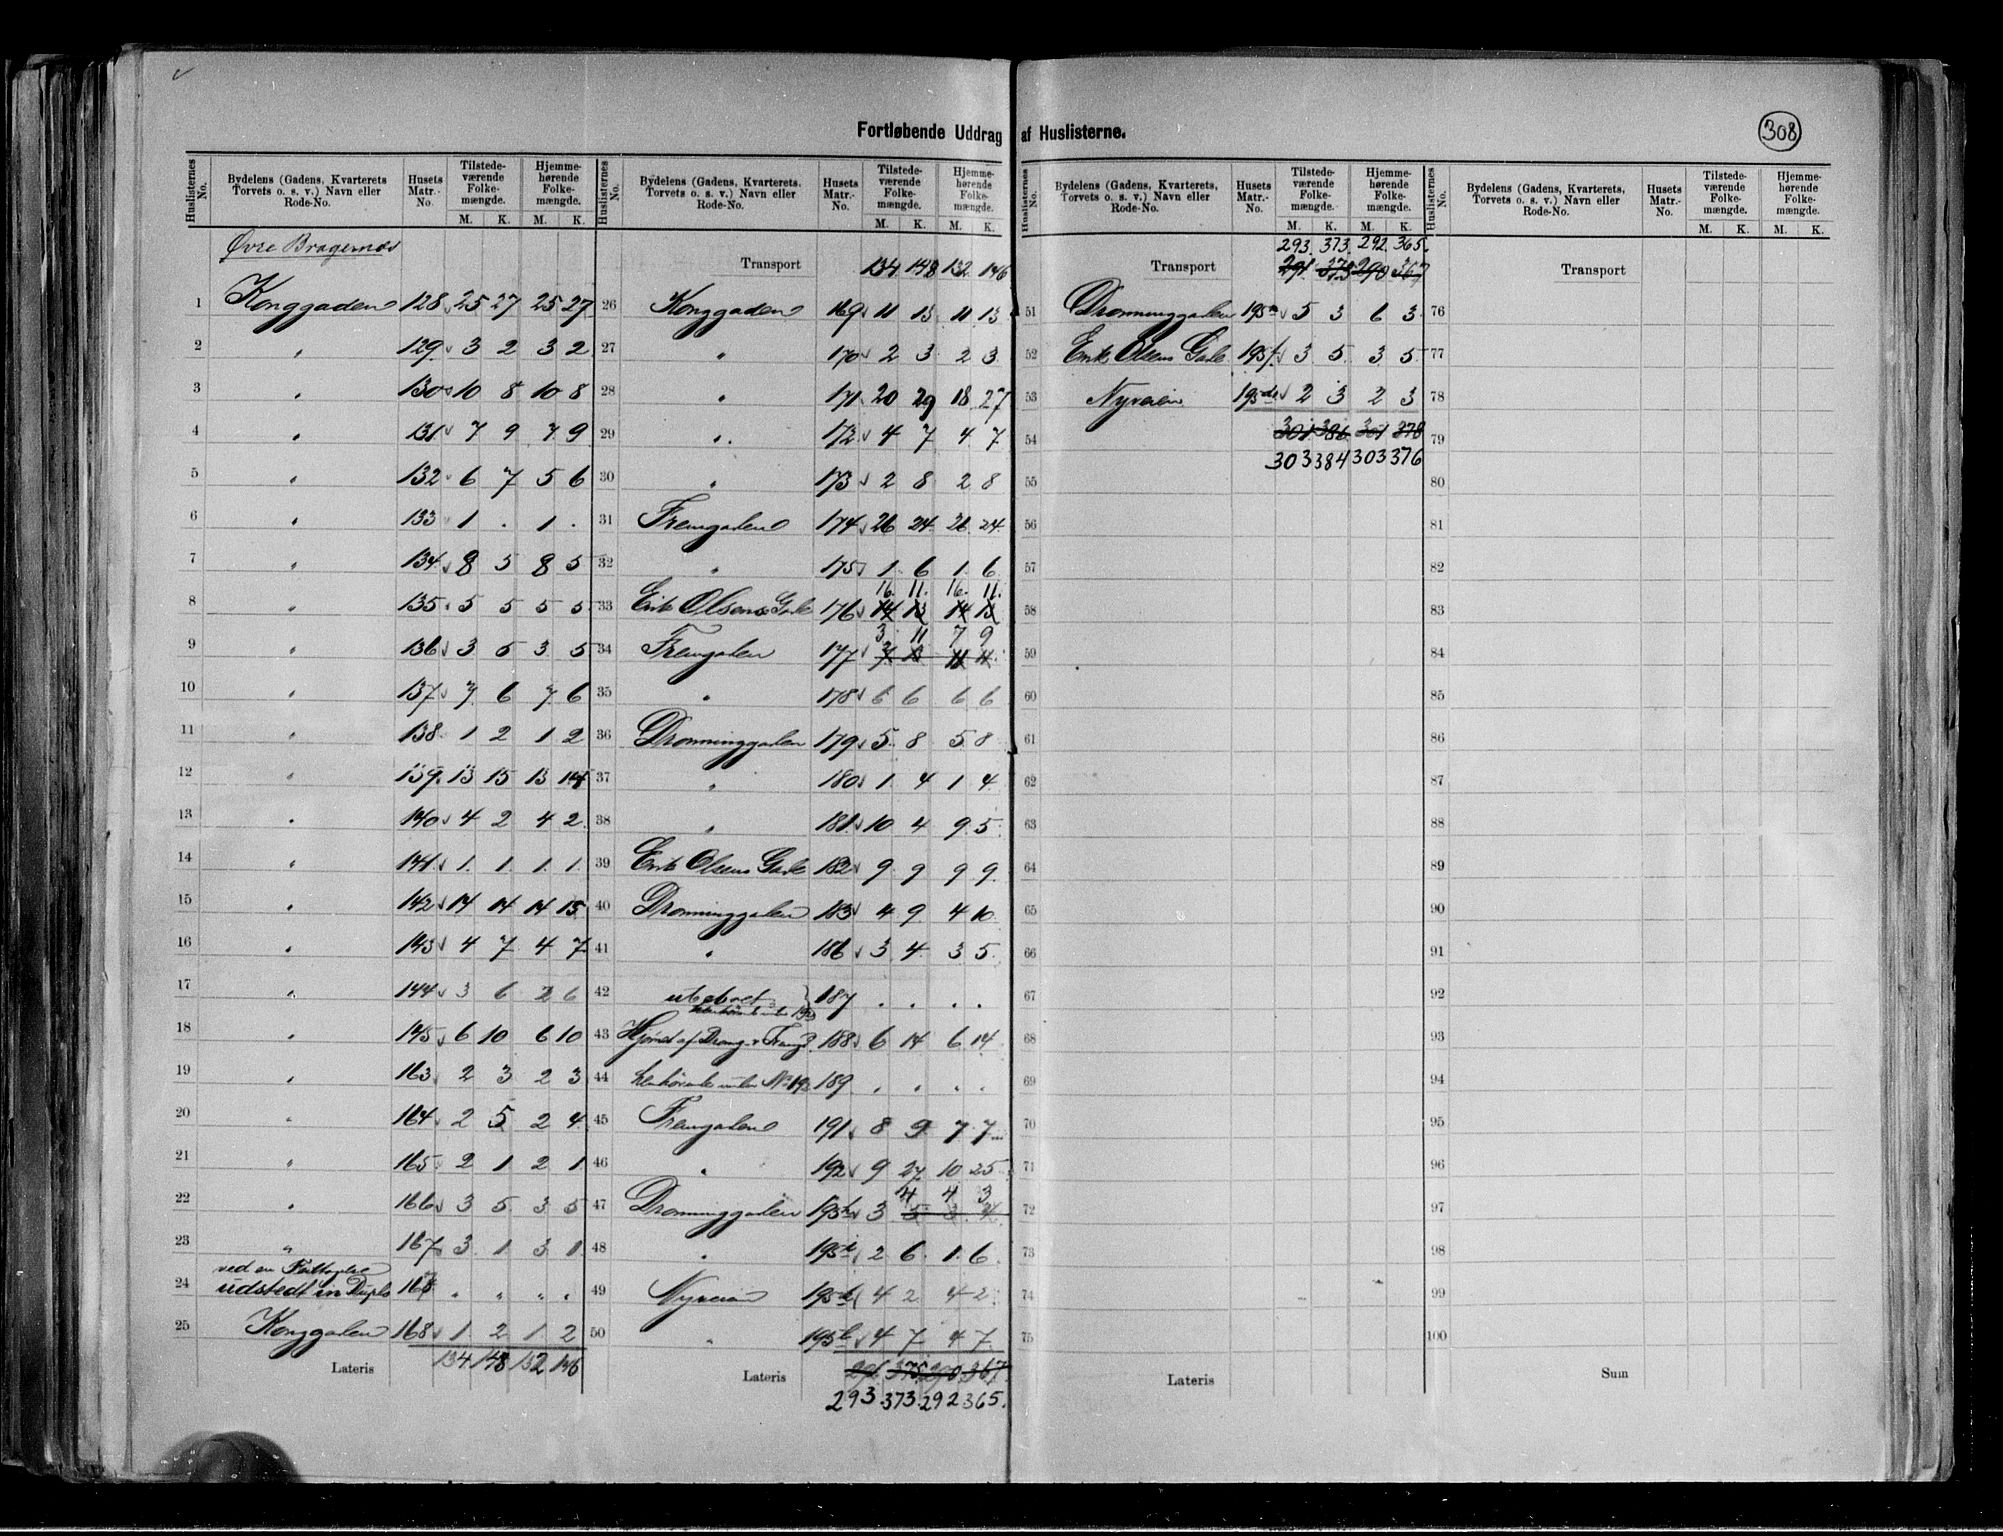 Fortløbende Uddrag af Huslisterne.
308
Huslisternes No. | Bydelens (Gadens, Kvarterets Torvets o. s. v.) Navn eller Rode-No. | Husets Matr.-No. | Tilstedeværende Folkemængde. M. K. | Hjemmehørende Folkemængde. M. K.
Øvre Bragernæs
1 Konggaden 128 25 27 25 27
2 " 129 3 2 3 2
3 " 130 10 8 10 8
4 " 131 7 9 7 9
5 " 132 6 7 5 6
6 " 133 1 . 1 .
7 " 134 8 5 8 5
8 " 135 5 5 5 5
9 " 136 3 5 3 5
10 " 137 7 6 7 6
11 " 138 1 2 1 2
12 " 139 13 15 13 14
13 " 140 4 2 4 2
14 " 141 1 1 1 1
15 " 142 14 14 14 15
16 " 143 4 7 4 7
17 " 144 3 6 2 6
18 " 145 6 10 6 10
19 " 163 2 3 2 3
20 " 164 2 5 2 4
21 " 165 2 1 2 1
22 " 166 3 5 3 5
23 " 167 3 1 3 1
ved en
24 udstedt in Duplo 168 " " " "
25 Konggaden 168 1 2 1 2
Lateris 134 148 132 146
Huslisternes No. | Bydelens (Gadens, Kvarterets, Torvets o. s. v.) Navn eller Rode-No. | Husets Matr.-No. | Tilstedeværende Folkemængde. M. K. | Hjemmehørende Folkemængde. M. K.
Transport 134 148 132 146
26 Konggaden 169 11 13 11 13
27 " 170 2 3 2 3
28 " 171 20 29 18 27
29 " 172 4 7 4 7
30 " 173 2 8 2 8
31 Fremgaden 174 26 24 26 24
32 " 175 1 6 1 6
16. 11. 16. 11.
33 Erik Olsens Gade 176 14 13 14 13
3 11 7 9
34 Fremgaden 177 11 11
35 " 178 6 6 6 6
36 Dronninggaden 179 5 8 5 8
37 " 180 1 4 1 4
38 " 181 10 4 9 5
39 Erik Olsens Gade 182 9 9 9 9
40 Dronninggaden 183 4 9 4 10
41 " 186 3 4 3 5
42 ubeboet 187 . . . .
43 Hjørnet af Drong. 188 6 14 6 14
44 henhørende under No 192 189 . . . .
45 Fremgaden 191 8 9 7 7
46 " 192 9 27 10 25
4 4 3
47 Dronninggaden 195h 3 5 3 4
48 " 195i 2 6 1 6
49 Nyveien 195 4 2 4 2
50 " 195 4 7 4 7
Lateris 291 375 290 367
293. 373. 292 365.
Huslisternes No. | Bydelens (Gadens, Kvarterets, Torvets o. s. v.) Navn eller Rode-No. | Husets Matr.-No. | Tilstedeværende Folkemængde. M. K. | Hjemmehørende Folkemængde. M. K.
293. 373. 292. 365.
Transport 291 375 290 367
51 Dronninggaden 195 5 3 6 3
52 Erik Olsens Gade 195f 3 5 3 5
53 Nyveien 195 2 3 2 3
54 301 386 301 378
303 384 303 376
55
56
57
58
59
60
61
62
63
64
65
66
67
68
69
70
71
72
73
74
75
Lateris
Huslisternes No. | Bydelens (Gadens, Kvarterets, Torvets o. s. v.) Navn eller Rode-No. | Husets Matr.-No. | Tilstedeværende Folkemængde. M. K. | Hjemmehørende Folkemængde. M. K.
Transport
76
77
78
79
80
81
82
83
84
85
86
87
88
89
90
91
92
93
94
95
96
97
98
99
100
Sum